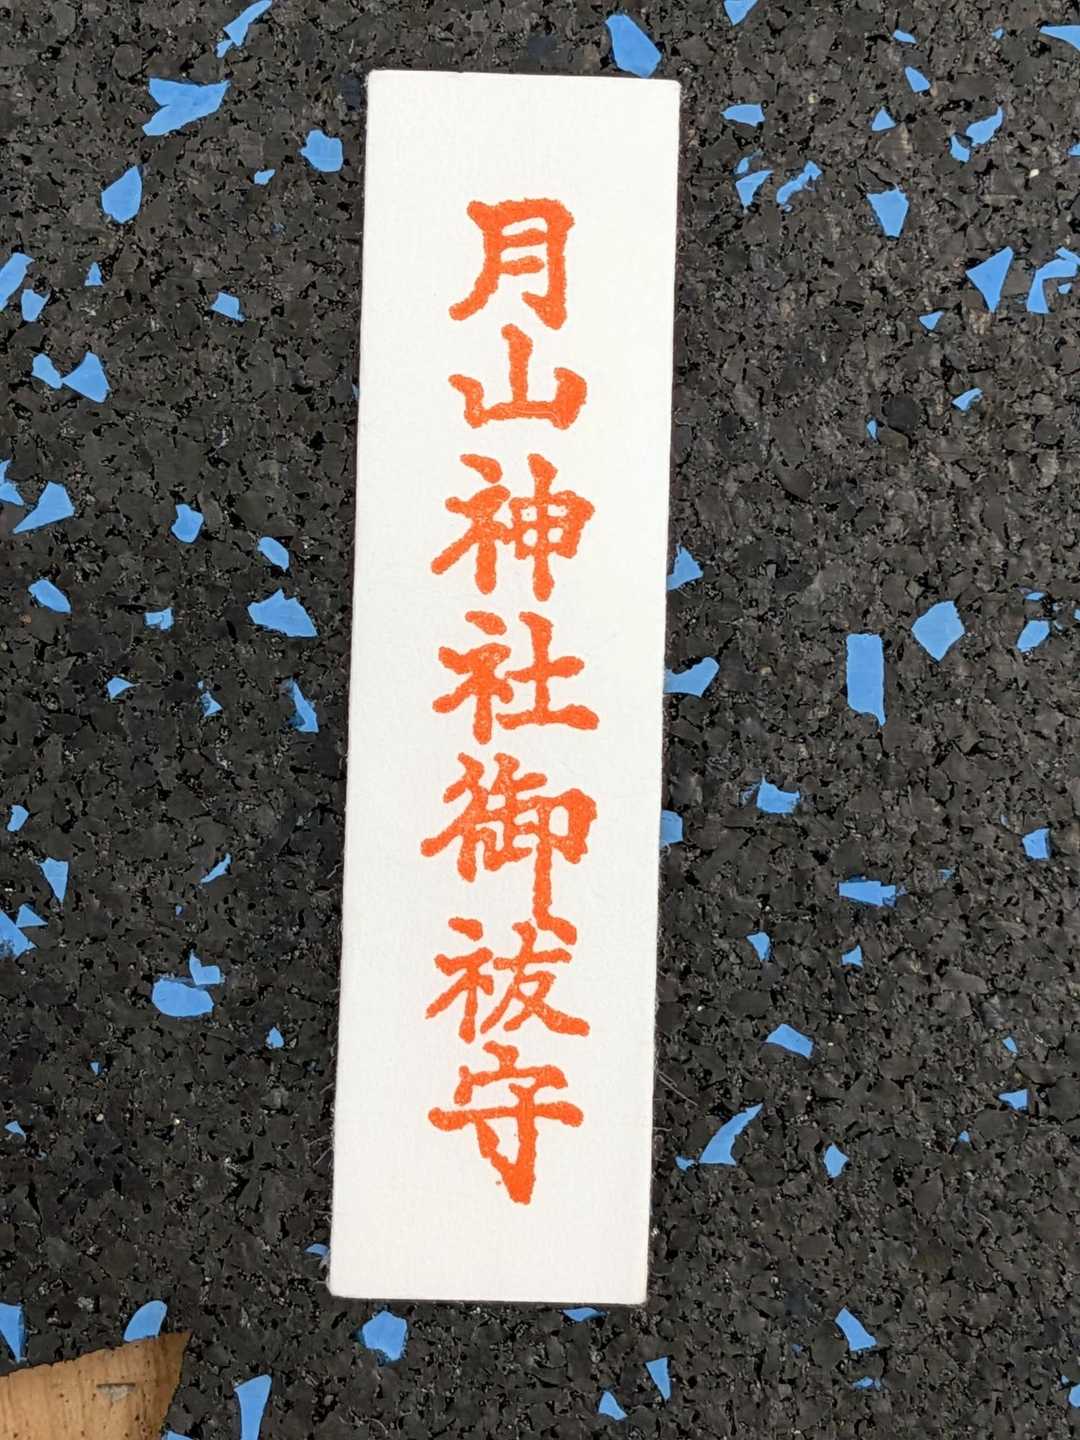 月山神社御祓守